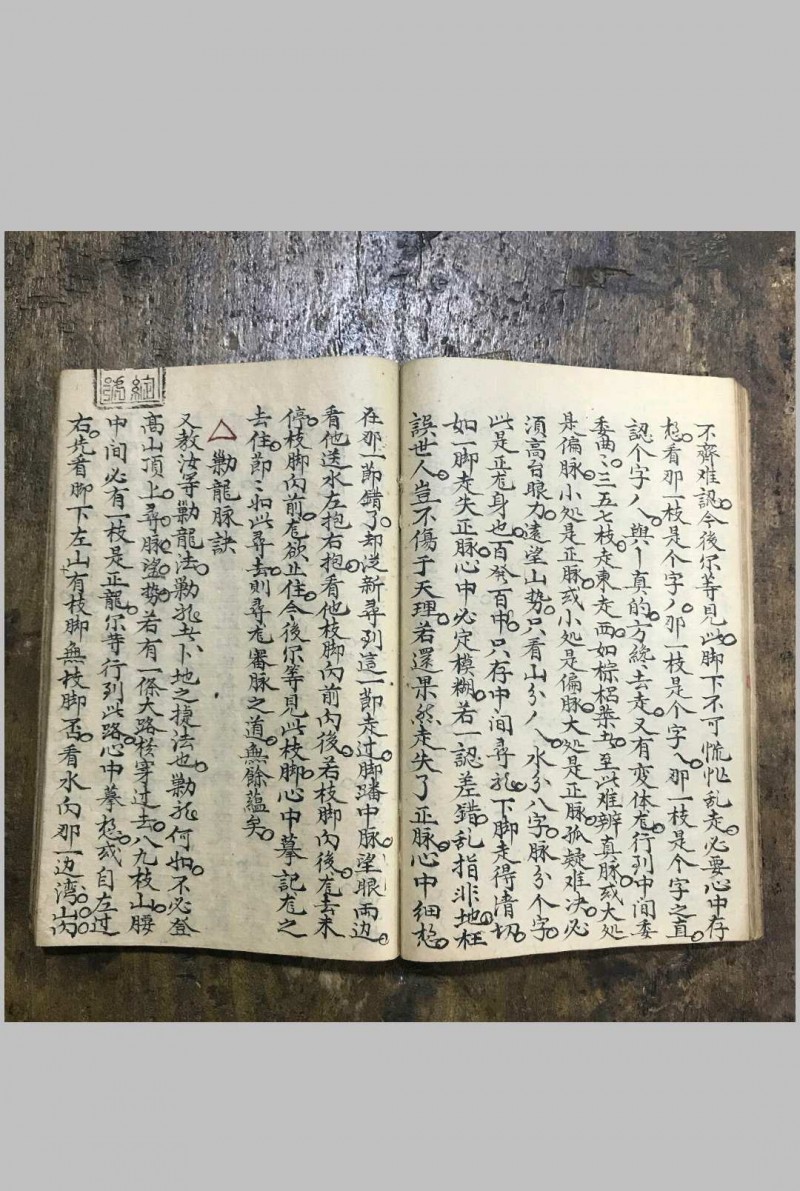 不齊难認。今後尔等見此脚下。不可慌忙乱走。必要心中存
想。看那一枝是个字丿。那一枝是个字乀。那一枝是个字之直。
認个字人。與丨真的。方終去走。又有变体龙。行到中间委
委曲曲。三五七枝。走東走西。如棕梠葉。至此难辨真脉。或大处
是偏脉。小处是正脉。或小处是偏脉。大处是正脉。孤疑难决。必
須高台眼力。遠望山势。只看山分人。水分八字。脉分个字。
此是正龙身也。百発百中。只存中间尋龙。下脚走得清切。
如一脚走失正脉。心中必定模糊。若一認差錯。乱指非地。枉
誤世人。豈不傷于天理。若還果然走失了正脉。心中细想。
在那一節錯了。却送新尋到這一節走过。脚踏中脉。望眼兩边。
看他送水左抱右抱。看他枝脚向前向後。若枝脚向後。龙去未
停。枝脚向前。龙欲止住。今後尔等見此枝脚。心中摹記龙之
去住。節節如此尋去。則尋龙審脉之道。無餘蘊矣。
△ 勦龍脉訣
又教汝等勦龍法。勦龙者。卜地之捷法也。勦龙何如。不必登
高山頂上。尋脉望势。若有一條大路横穿过去。八九枝山腰
中间必有一枝是正龍。尔等行到此路。心中摹想。或自左过
右。先看脚下左山有枝脚無枝脚否。看水向那一边湾。山向